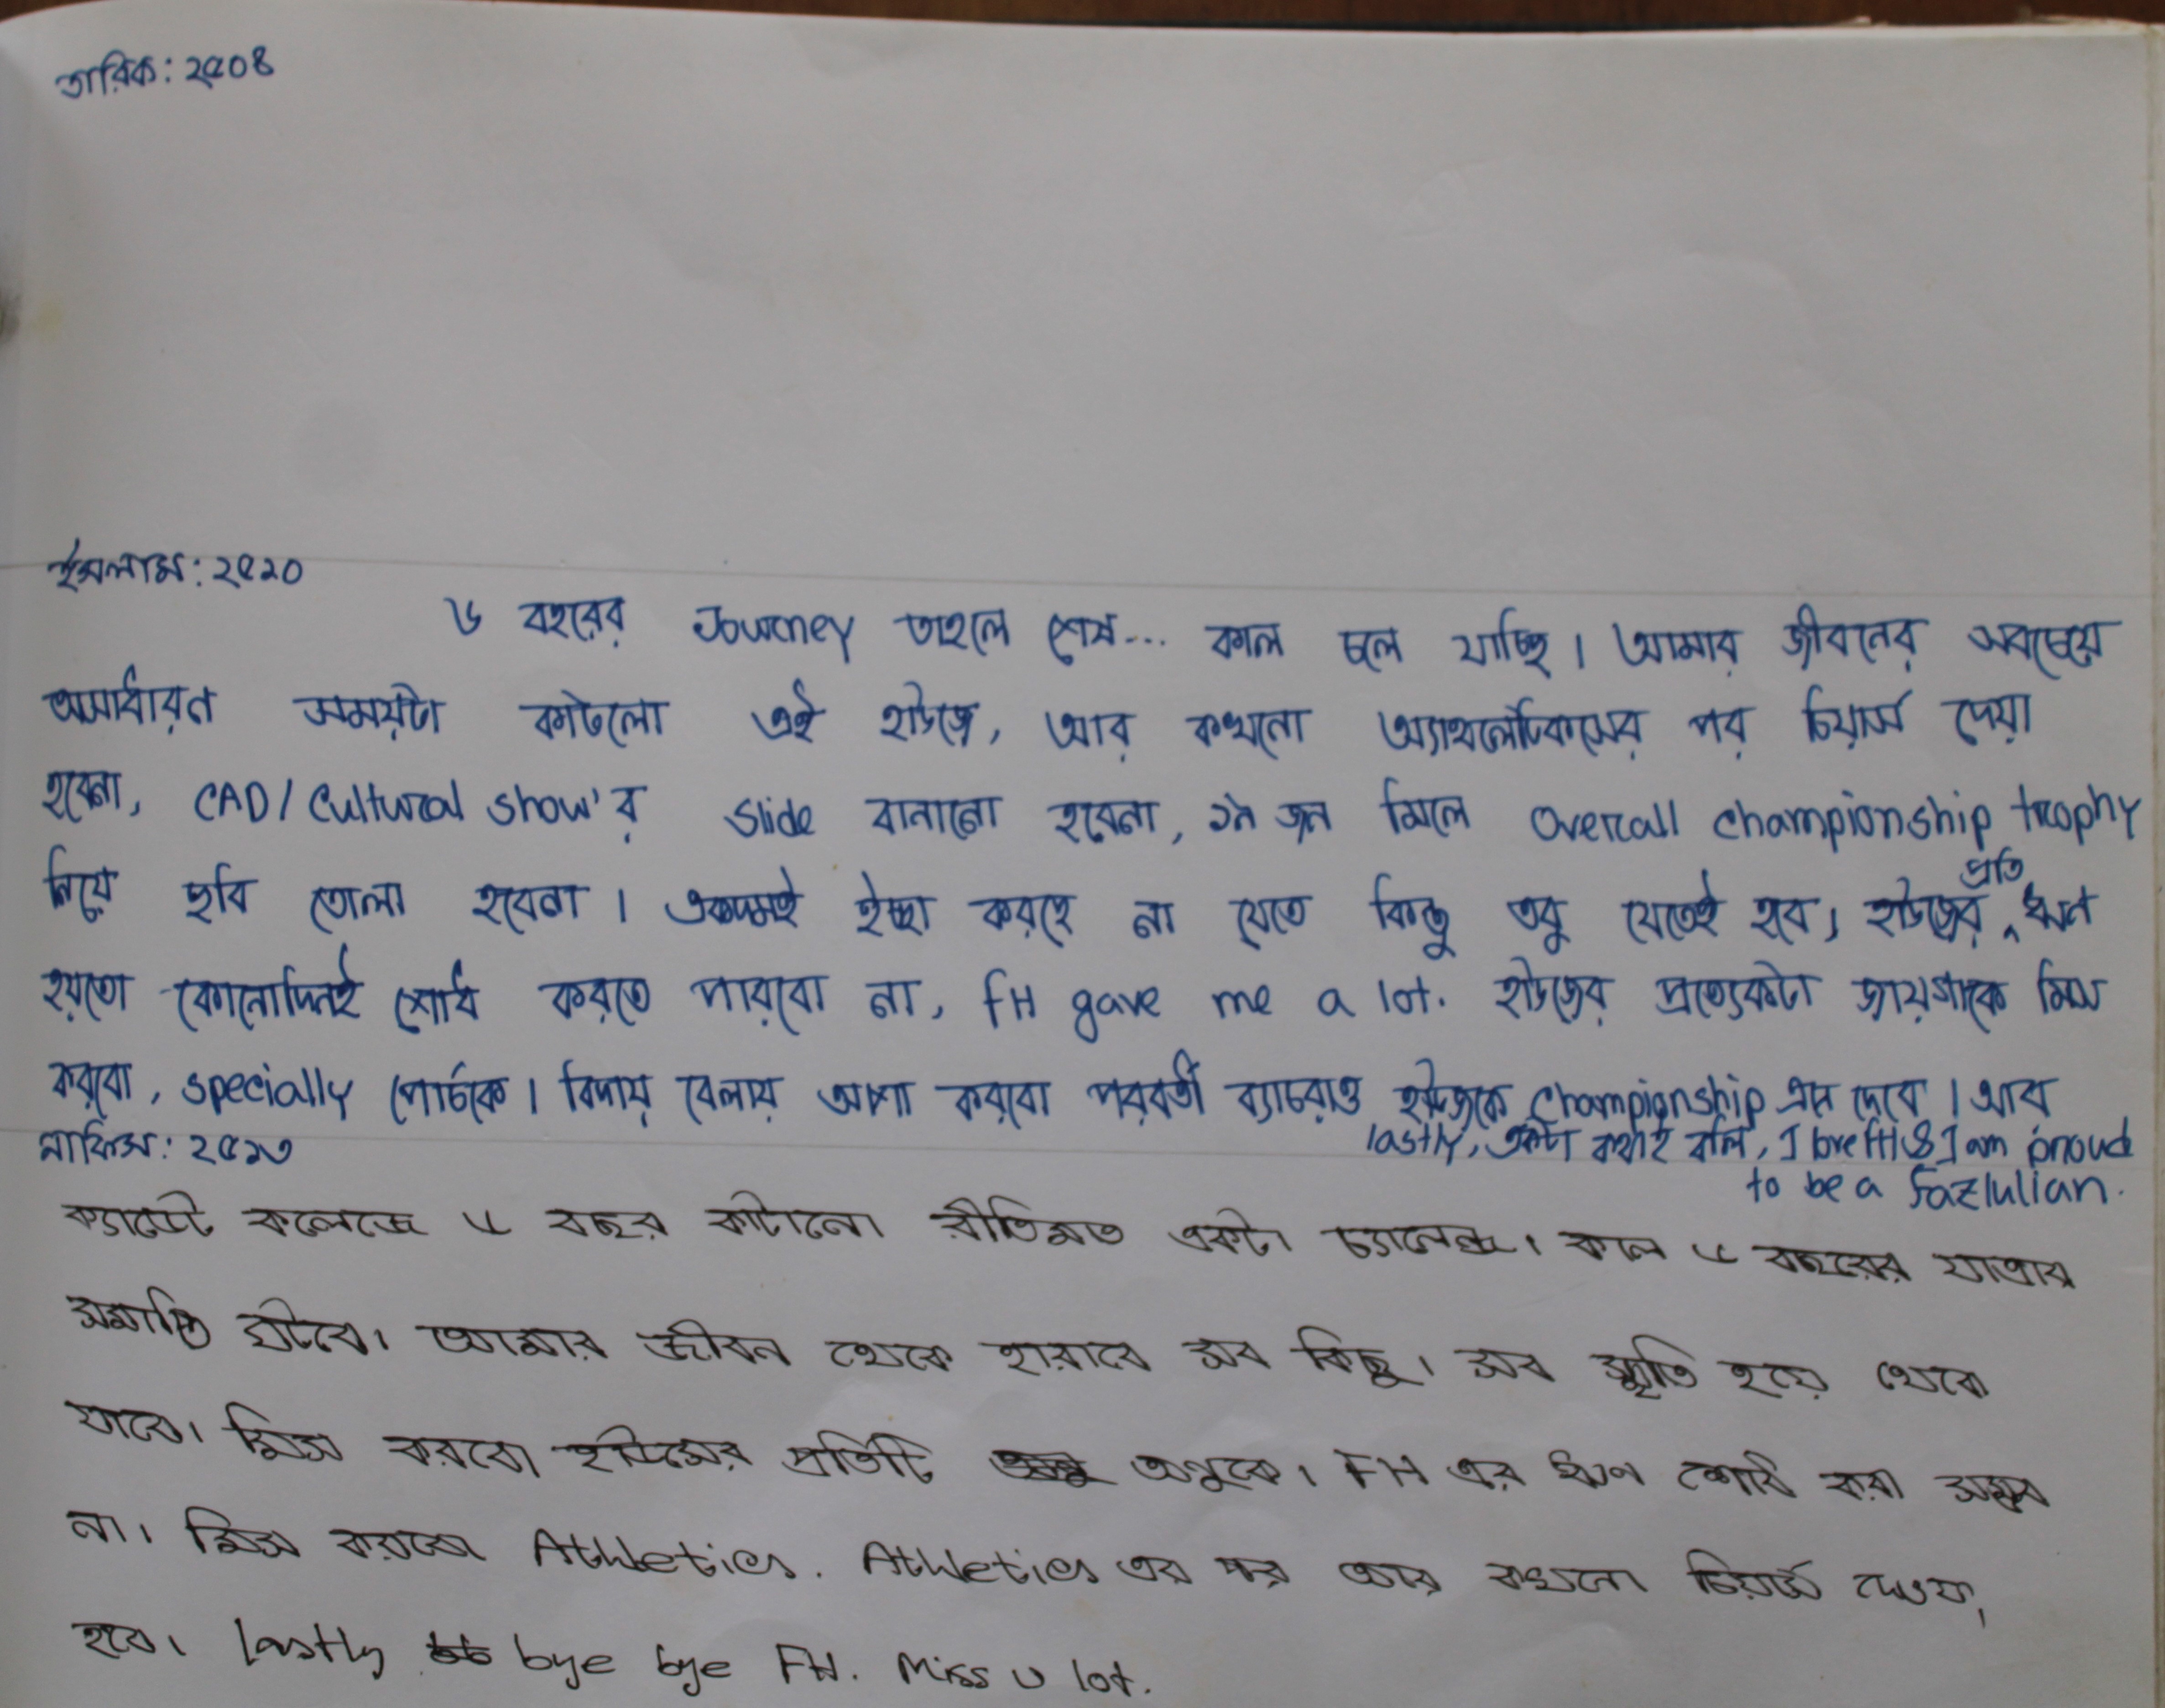 তারিক: ২৫০৪
ইসলাম: ২৫২০
৬ বছরের Journey তাহলে শেষ... কাল চলে যাচ্ছি। আমার জীবনের সবচেয়ে
অসাধারণ সময়টা কাটলো এই হাউজে, আর কখনো অ্যাথলেটিকসের পর চিয়ার্স দেয়া
হবেনা, CAD/Cultural show'র slide বানানো হবেনা, ১৯ জন মিলে overall championship trophy
নিয়ে ছবি তোলা হবেনা। একদমই ইচ্ছা করছে না যেতে কিন্তু তবু যেতেই হবে, হাউজের প্রতি ঋণ
হয়তো কোনোদিনই শোধ করতে পারবো না, FH gave me a lot. হাউজের প্রত্যেকটা জায়গাকে মিস
করবো, specially পোর্চকে। বিদায় বেলায় আশা করবো পরবর্তী ব্যাচরাও হাউজকে championship এনে দেবে। আর
lastly, একটা কথাই বলি, I love FH & I am proud
to be a fazlulian.
নাফিস: ২৫২৩
ক্যাডেট কলেজে ৬ বছর কাটানো রীতিমত একটা চ্যালেঞ্জ। কাল ৬ বছরের যাত্রার
সমাপ্তি ঘটবে। আমার জীবন থেকে হারাবে সব কিছু। সব স্মৃতি হয়ে থেকে
যাবে। মিস করবো হাউসের প্রতিটি অণুকে। FH এর ঋণ শোধ করা সম্ভব
না। মিস করবো Athletics. Athletics এর পর আর কখনো চিয়ার্স দেওয়া
হবে। lastly bye bye FH. Miss U lot.